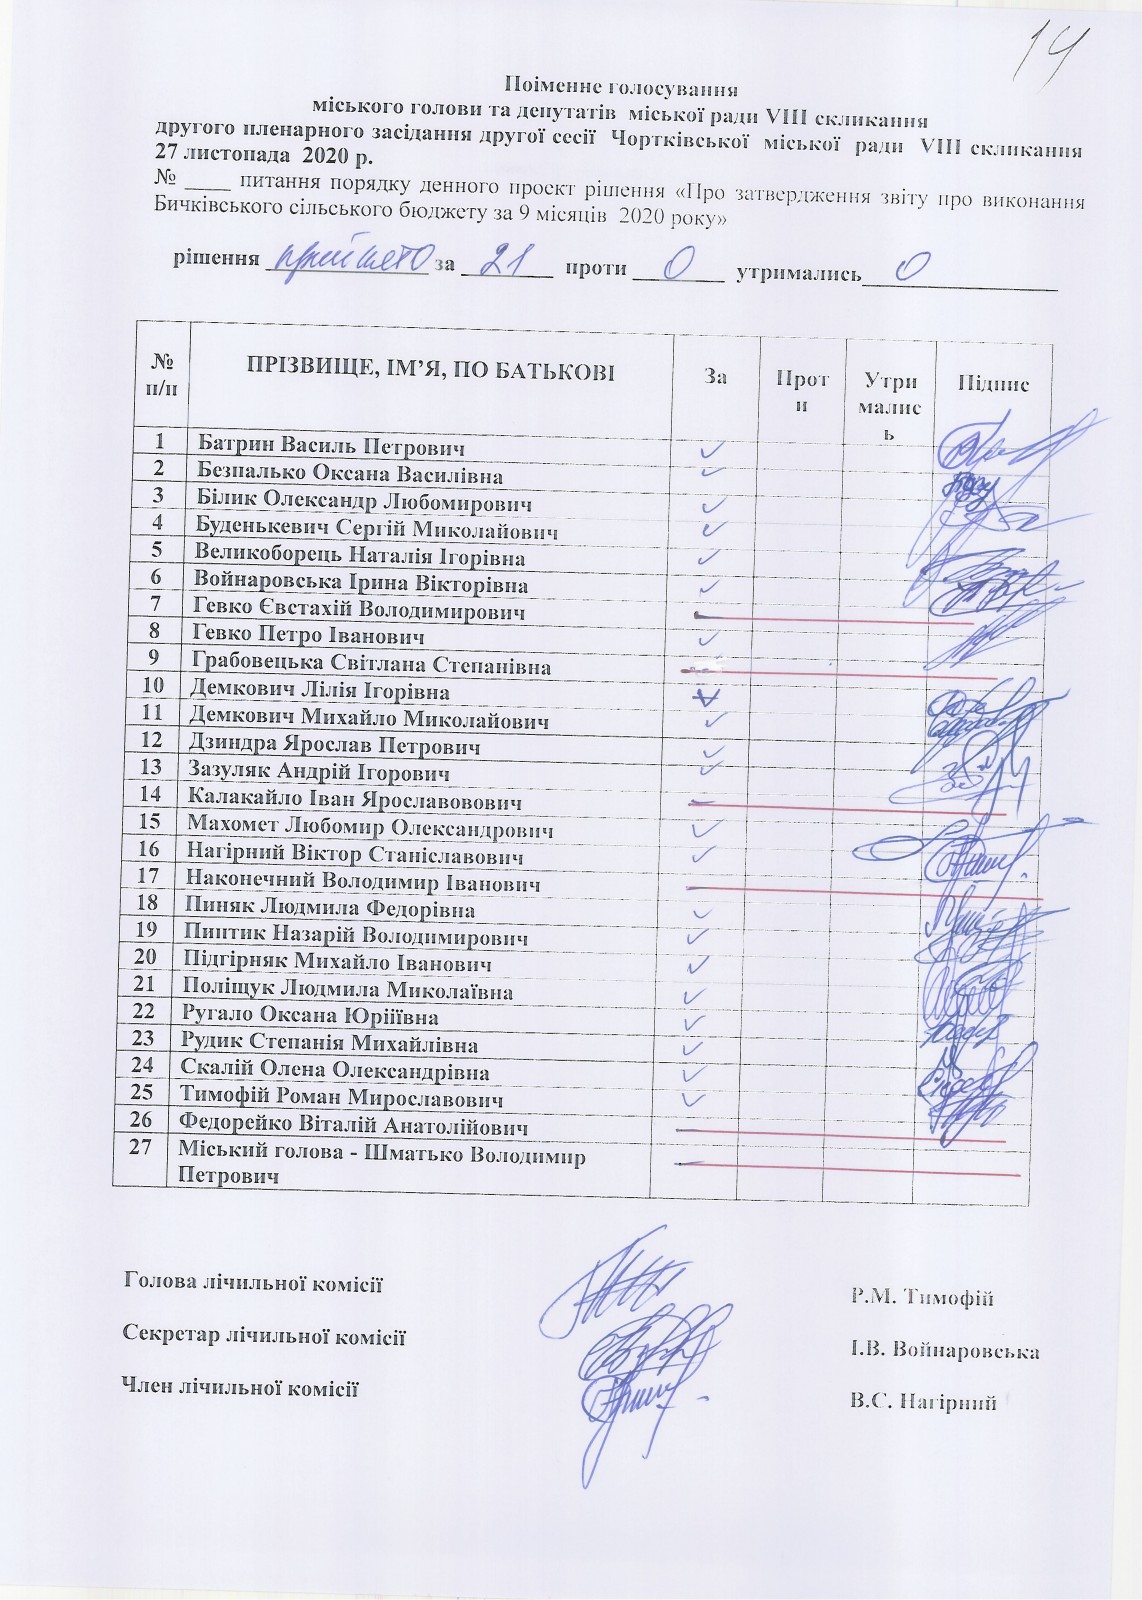 14
Поіменне голосування
міського голови та депутатів міської ради VIII скликання
другого пленарного засідання другої сесії Чортківської міської ради VIII скликання
27 листопада 2020 р.
№ ____ питання порядку денного проект рішення «Про затвердження звіту про виконання
Бичківського сільського бюджету за 9 місяців 2020 року»
рішення прийнято за 21 проти 0 утримались 0
№ п/п ПРІЗВИЩЕ, ІМ’Я, ПО БАТЬКОВІ За Проти Утримались Підпис
1 Батрин Василь Петрович
2 Безпалько Оксана Василівна
3 Білик Олександр Любомирович
4 Буденькевич Сергій Миколайович
5 Великоборець Наталія Ігорівна
6 Войнаровська Ірина Вікторівна
7 Гевко Євстахій Володимирович
8 Гевко Петро Іванович
9 Грабовецька Світлана Степанівна
10 Демкович Лілія Ігорівна
11 Демкович Михайло Миколайович
12 Дзиндра Ярослав Петрович
13 Зазуляк Андрій Ігорович
14 Калакайло Іван Ярославовович
15 Махомет Любомир Олександрович
16 Нагірний Віктор Станіславович
17 Наконечний Володимир Іванович
18 Пиняк Людмила Федорівна
19 Пинтик Назарій Володимирович
20 Підгірняк Михайло Іванович
21 Поліщук Людмила Миколаївна
22 Ругало Оксана Юріїївна
23 Рудик Степанія Михайлівна
24 Скалій Олена Олександрівна
25 Тимофій Роман Мирославович
26 Федорейко Віталій Анатолійович
27 Міський голова - Шматько Володимир
Петрович
Голова лічильної комісії Р.М. Тимофій
Секретар лічильної комісії І.В. Войнаровська
Член лічильної комісії В.С. Нагірний